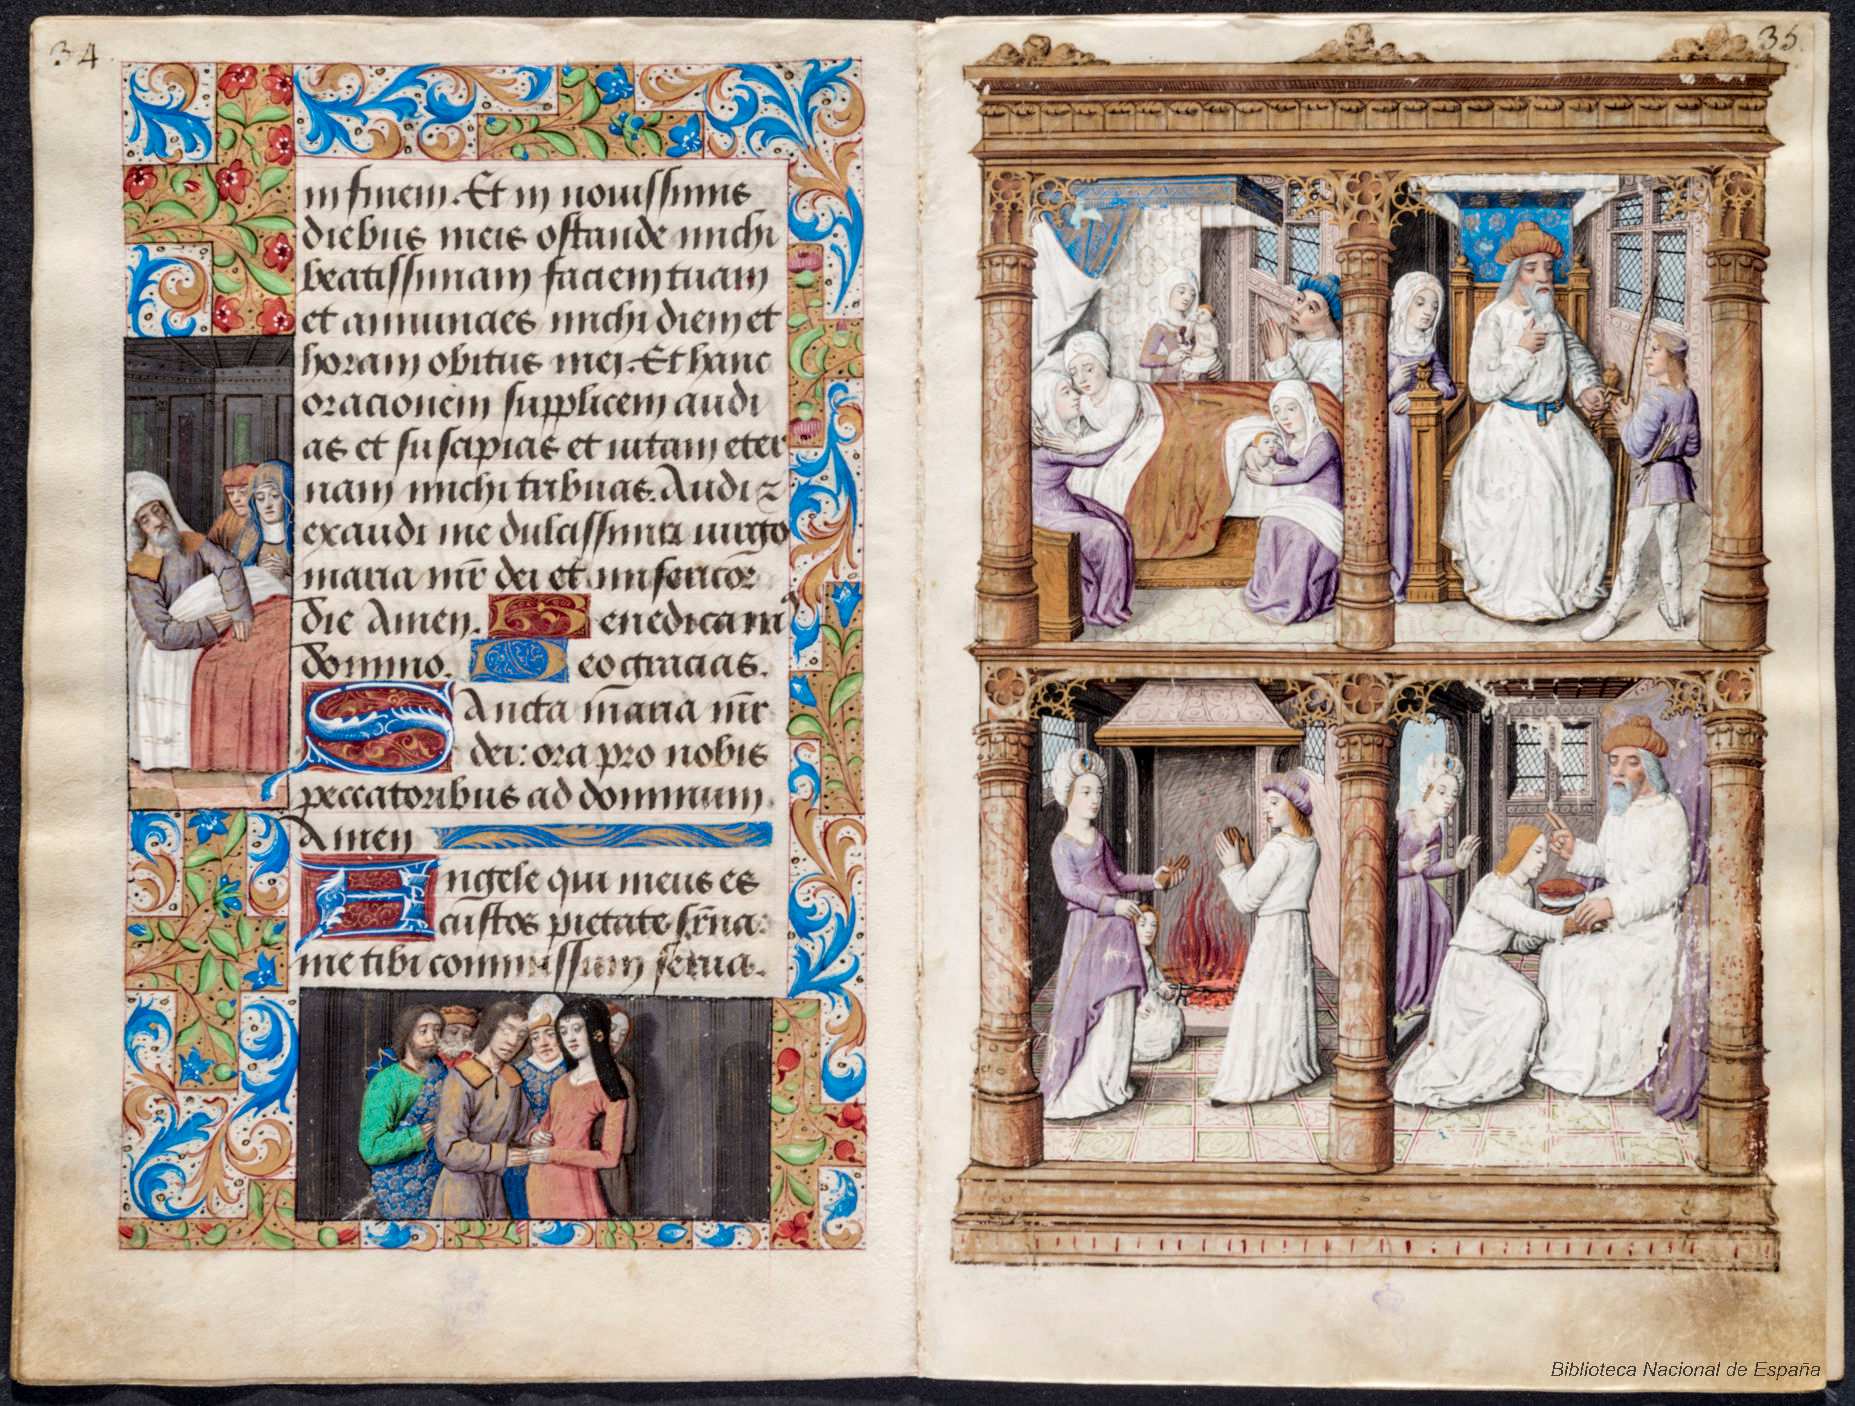 34
in finem. Et in nouissimis
diebus meis ostande michi
beatissimam faciem tuam
et annuncies michi diem et
horam obitus mei. Et hanc
oracionem supplicem audi
as et suscipias et uitam eter
nam michi tribuas. Audi ⁊
exaudi me dulcissima uirgo
maria mr̄ dei et misericor
die Amen. Benedicamꝰ
domino. Deo gracias.
Sancta maria mr̄
dei: ora pro nobis
peccatoribus ad dominum.
Amen
Angele qui meus es
custos pietate sr̄na:
me tibi commissum serua.
35
Biblioteca Nacional de España